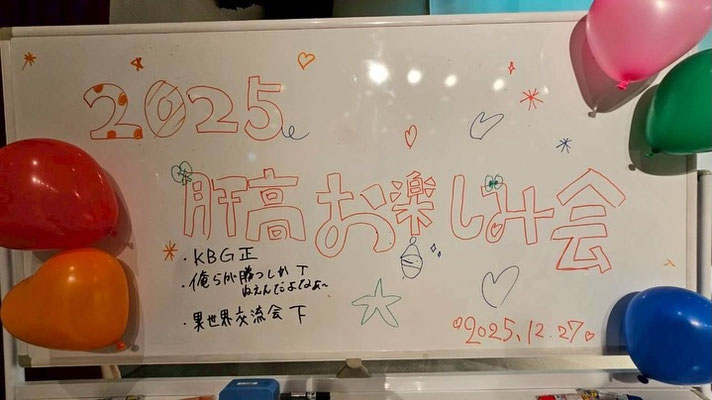 2025
肝高お楽しみ会
・KBG 正
・俺らが勝つしか T
ねぇんだよなぁ~
・異世界交流会 下
2025.12.27